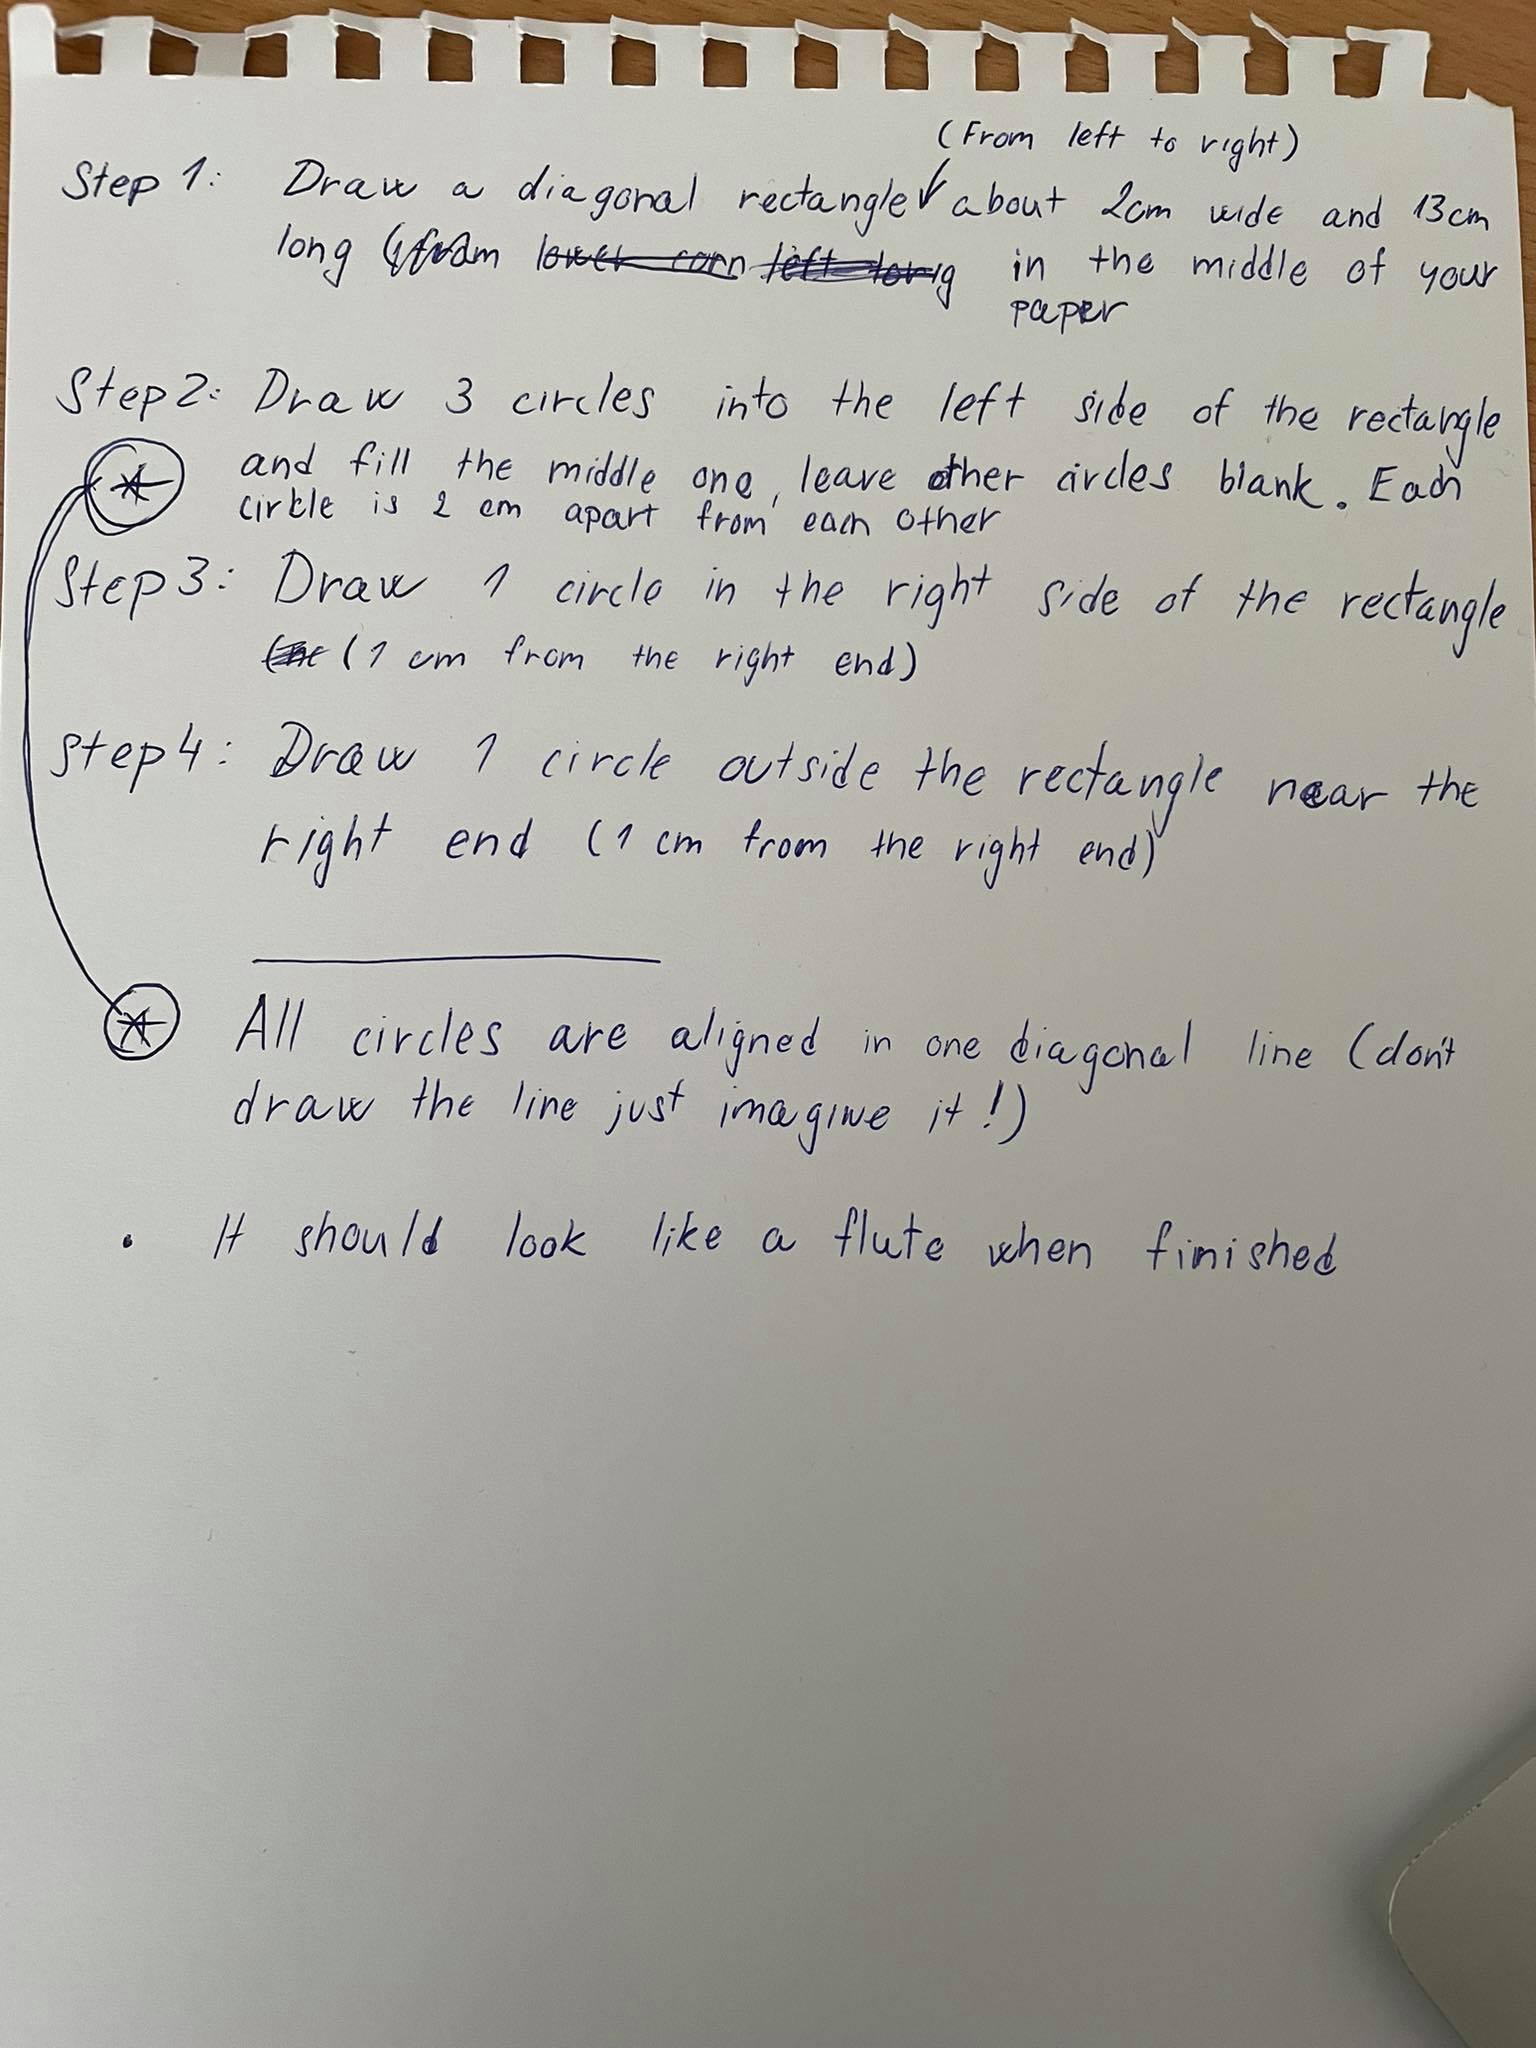 (From left to right)
Step 1: Draw a diagonal rectangle about 2cm wide and 13cm
long in the middle of your
paper
Step 2: Draw 3 circles into the left side of the rectangle
and fill the middle one, leave other circles blank. Each
cirkle is 2 cm apart from each other
Step 3: Draw 1 circle in the right side of the rectangle
(1 cm from the right end)
Step 4: Draw 1 circle outside the rectangle near the
right end (1 cm from the right end)
All circles are aligned in one diagonal line (don't
draw the line just imagine it!)
• It should look like a flute when finished